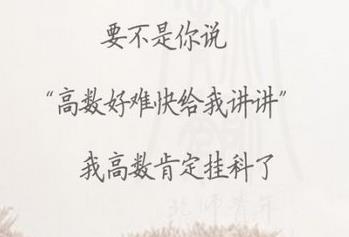 要不是你说
“高数好难快给我讲讲”
我高数肯定挂科了